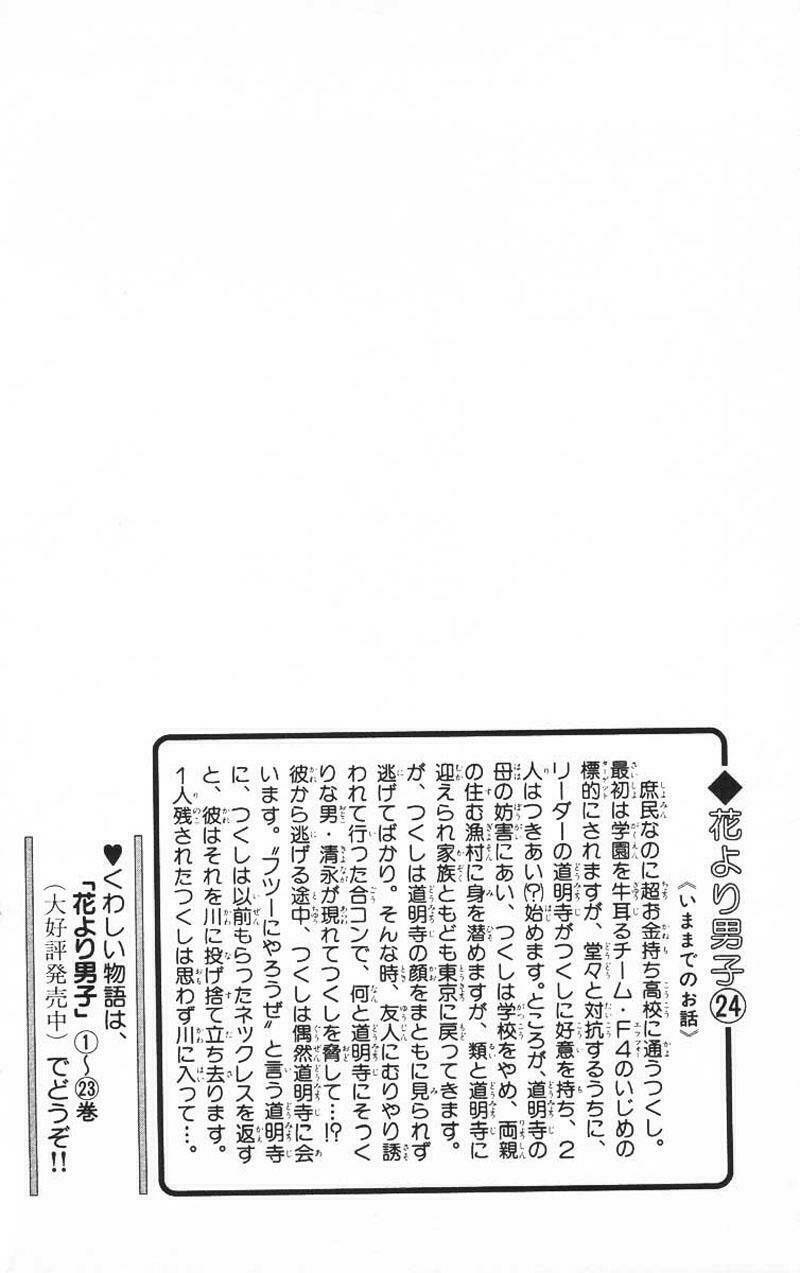 ◆花より男子㉔
《いままでのお話》
庶民なのに超お金持ち高校に通うつくし。
最初は学園を牛耳るチーム・F4のいじめの
標的にされますが、堂々と対抗するうちに、
リーダーの道明寺がつくしに好意を持ち、2
人はつきあい(?)始めます。ところが、道明寺の
母の妨害にあい、つくしは学校をやめ、両親
の住む漁村に身を潜めますが、類と道明寺に
迎えられ家族ともども東京に戻ってきます。
が、つくしは道明寺の顔をまともに見られず
逃げてばかり。そんな時、友人にむりやり誘
われて行った合コンで、何と道明寺にそっく
りな男・清永が現れてつくしを脅して…!?
彼から逃げる途中、つくしは偶然道明寺に会
います。〝フツーにやろうぜ〟と言う道明寺
に、つくしは以前もらったネックレスを返す
と、彼はそれを川に投げ捨て立ち去ります。
1人残されたつくしは思わず川に入って…。
♥くわしい物語は、
「花より男子」①〜㉓巻
(大好評発売中)でどうぞ!!